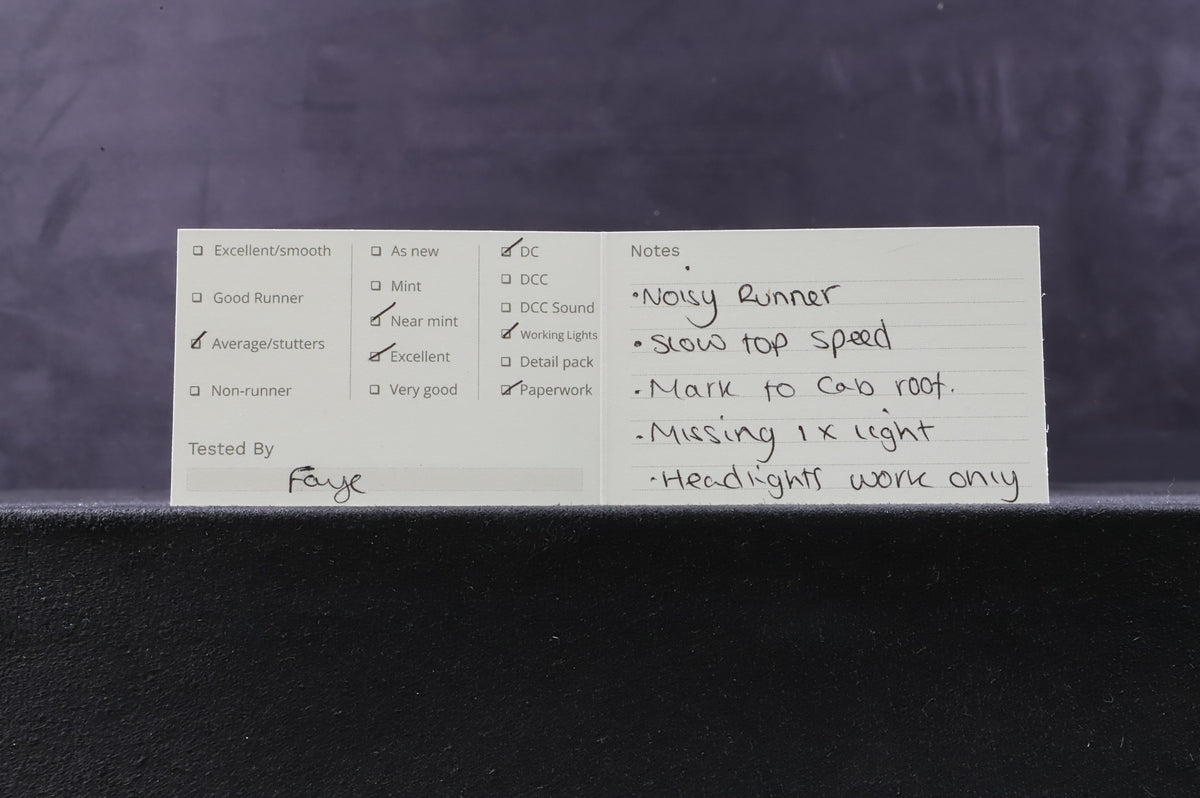 Excellent/smooth
Good Runner
Average/stutters
Non-runner
As new
Mint
Near mint
Excellent
Very good
DC
DCC
DCC Sound
Working Lights
Detail pack
Paperwork
Tested By
Faye
Notes
•Noisy Runner
•Slow top speed
•Mark to Cab roof.
•Missing 1x light
•Headlights work only